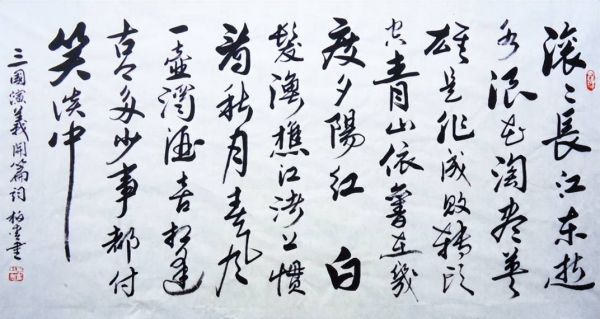 滚〻長江东逝
水浪花淘尽英
雄是非成敗转头
空青山依舊在幾
度夕陽红 白
髮漁樵江渚上慣
看秋月春风
一壺濁酒喜相逢
古今多少事都付
笑谈中
三國演義開篇词 書